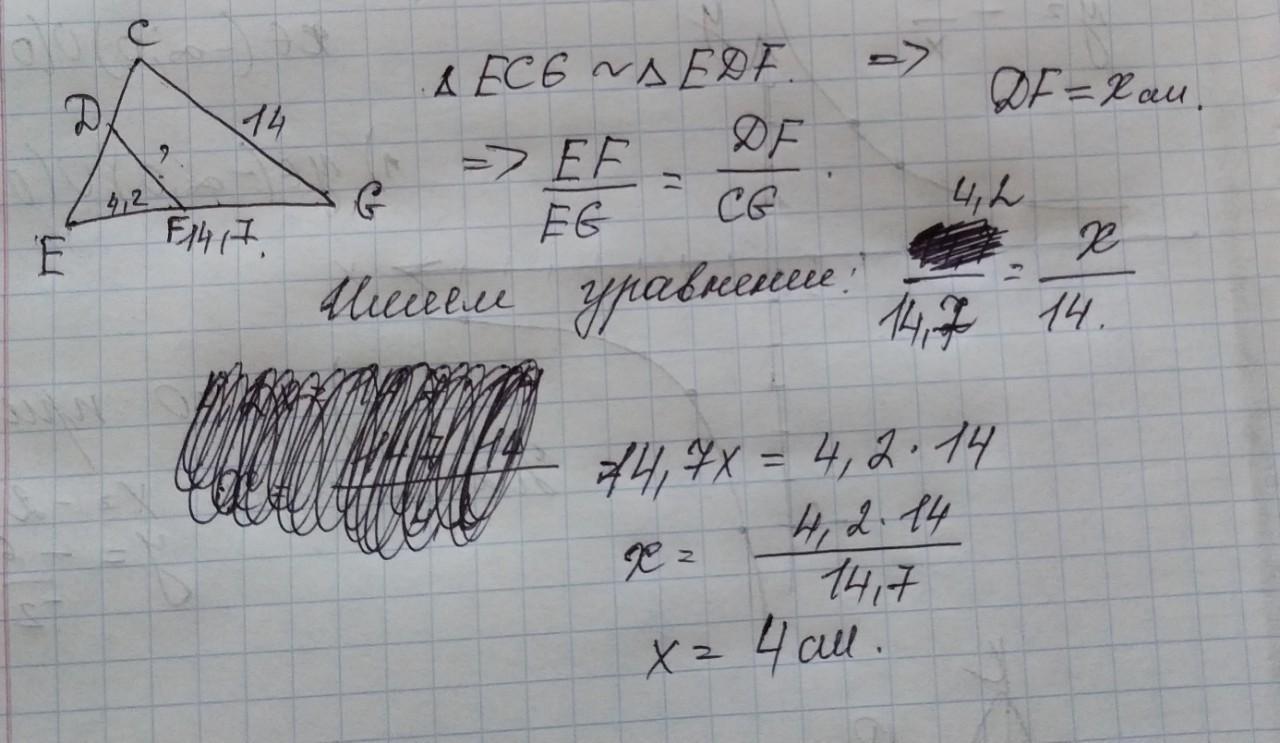 C
D
14
?
4,2
E
F
14,7.
G
△ ECG ~ △ EDF. =>
DF = x см.
=> EF/EG = DF/CG.
Имеем уравнение: 4,2/14,7 = x/14.
14,7x = 4,2·14
x = 4,2·14/14,7
x = 4 см.